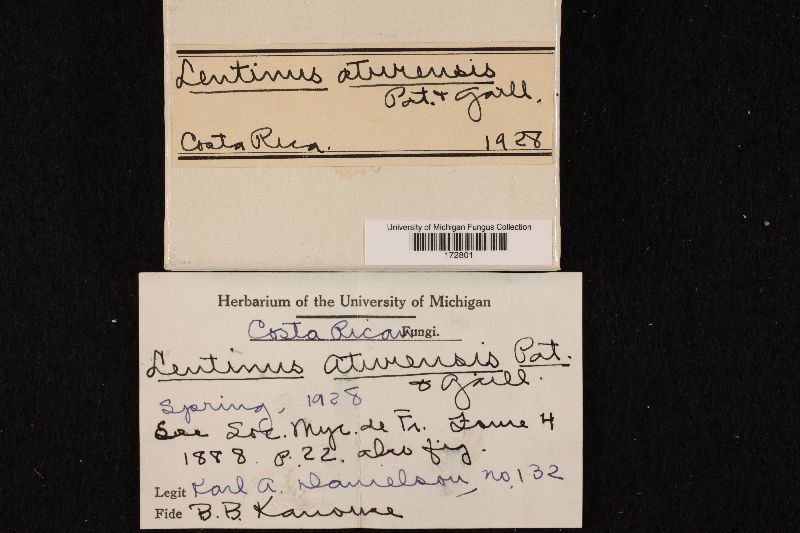 Lentinus aturensis
Pat. & Gaill.
Costa Rica. 1928
University of Michigan Fungus Collection
172801
Herbarium of the University of Michigan
Costa Rican Fungi.
Lentinus aturensis Pat.
& Gaill.
Spring, 1928
See Soc. Myc. de Fr. Tome 4
1888 p. 22. also fig.
Legit Karl A. Danielson, no. 132
Fide B.B. Kanouse